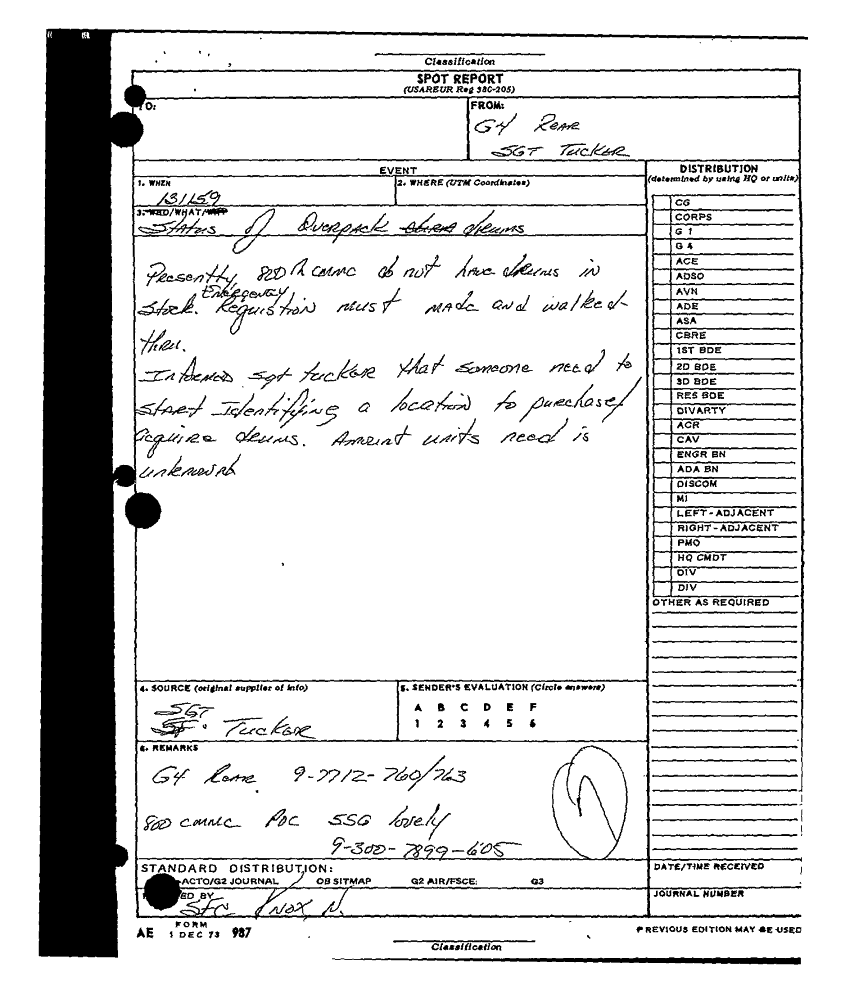 Classification
SPOT REPORT
(USAREUR Reg 380-205)
TO:
FROM:
G4 Rear
SGT Tucker
EVENT
DISTRIBUTION
(determined by using HQ or units)
1. WHEN
131159
2. WHERE (UTM Coordinates)
3. WHO/WHAT/WHY
Status of Overpack drums
Presently 800th CMMC do not have drums in
Emergency
Stock. Requistion must made and walked-
thru.
Informed Sgt Tucker that someone need to
Start Identifying a location to purchase/
acquire drums. Amount units need is
unknown
CG
CORPS
G 1
G 4
ACE
ADSO
AVN
ADE
ASA
CBRE
1ST BDE
2D BDE
3D BDE
RES BDE
DIVARTY
ACR
CAV
ENGR BN
ADA BN
DISCOM
MI
LEFT-ADJACENT
RIGHT-ADJACENT
PMO
HQ CMDT
DIV
DIV
OTHER AS REQUIRED
4. SOURCE (original supplier of info)
SGT
Tucker
5. SENDER'S EVALUATION (Circle answers)
A B C D E F
1 2 3 4 5 6
6. REMARKS
G4 Rear 9-7712-760/763
800 CMMC POC SSG lovely
9-300-7899-605
STANDARD DISTRIBUTION:
ACTO/G2 JOURNAL OB SITMAP G2 AIR/FSCE: G3
ED BY
SFC Knox, N.
DATE/TIME RECEIVED
JOURNAL NUMBER
AE FORM 1 DEC 73 987
PREVIOUS EDITION MAY BE USED
Classification